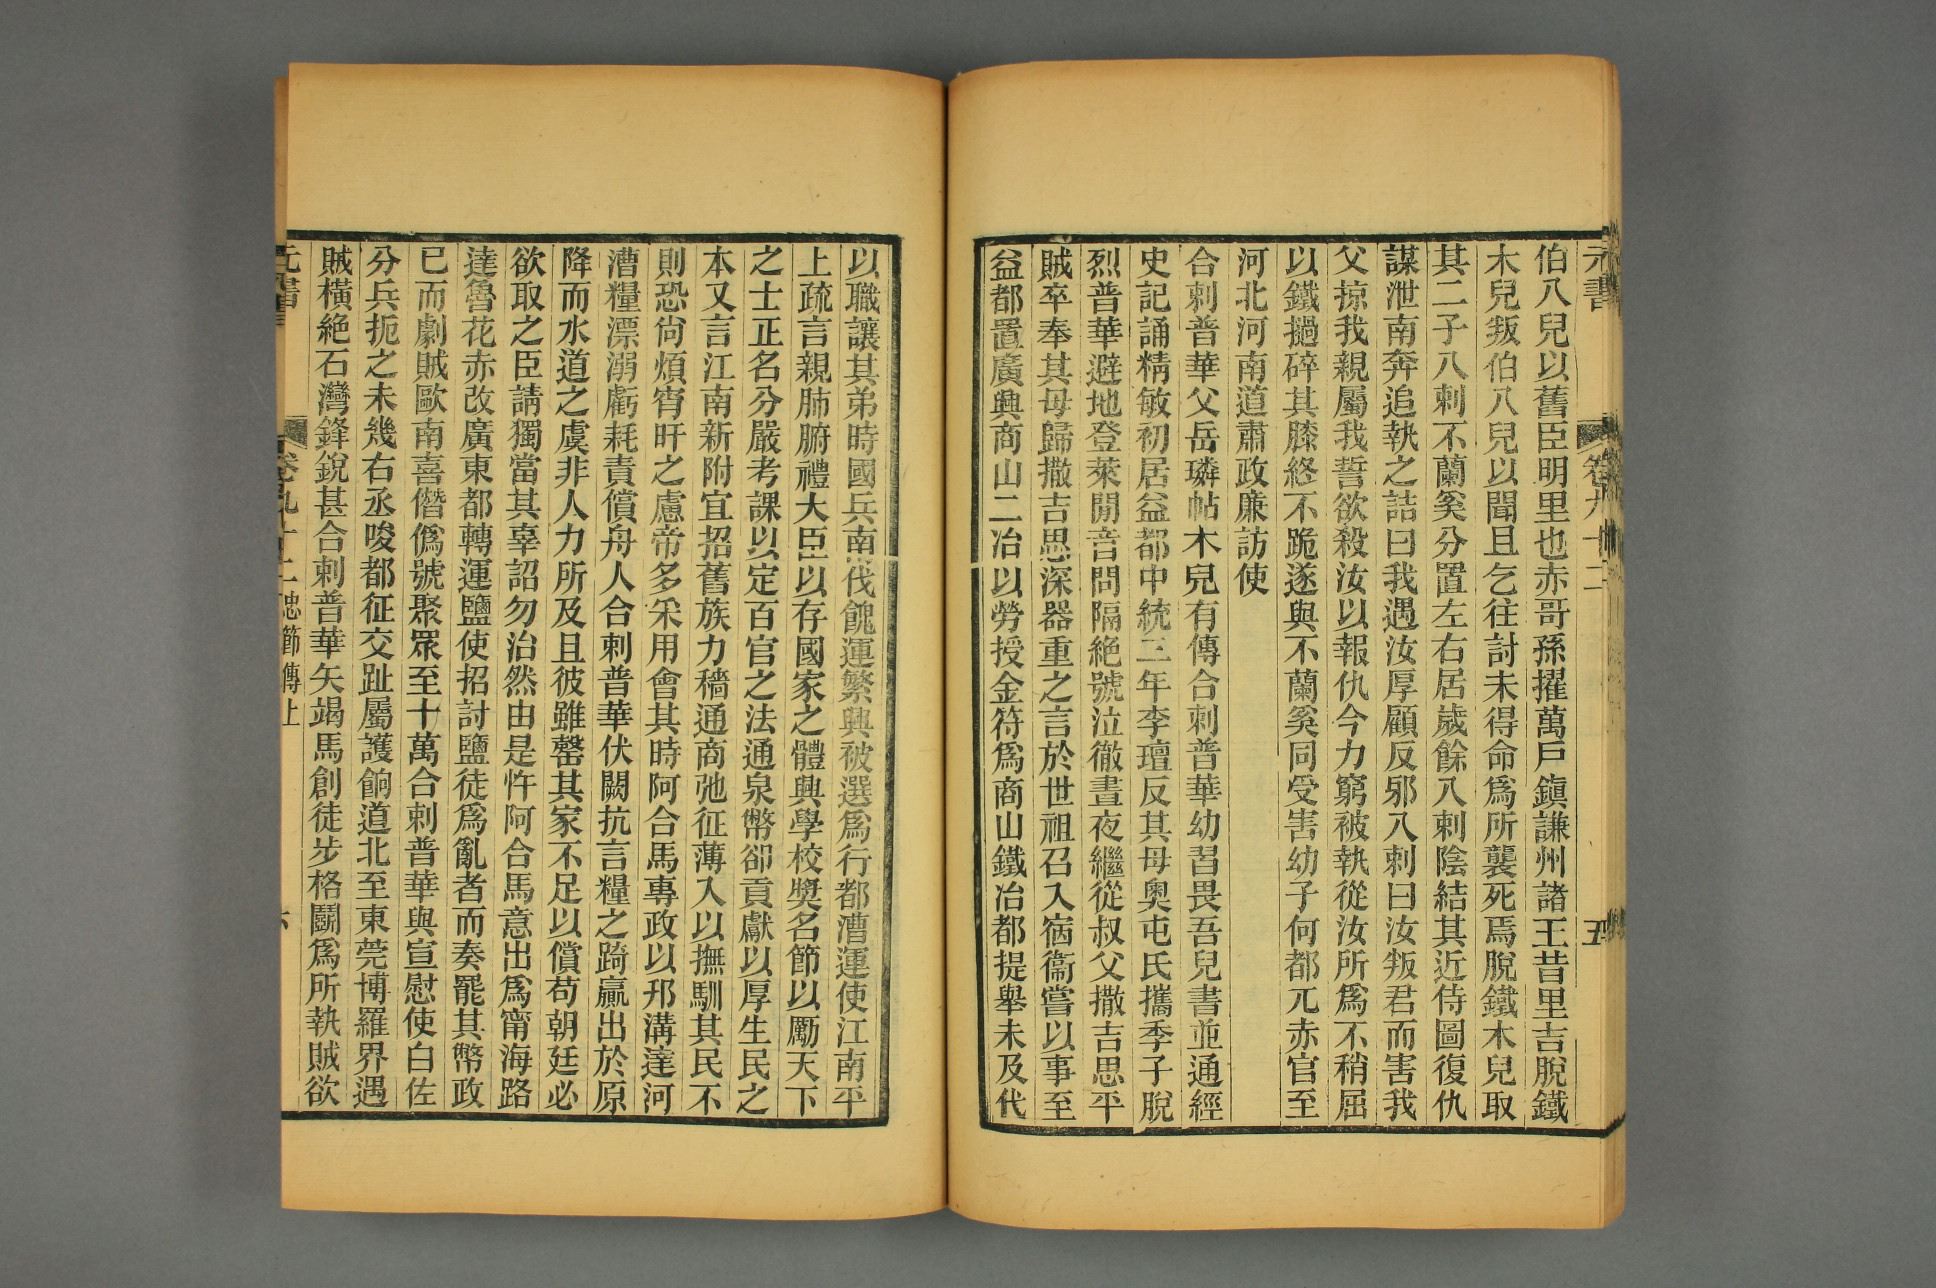 元書
卷九十二
五
伯八兒以舊臣明里也赤哥孫擢萬戶鎭謙州諸王昔里吉脫鐵
木兒叛伯八兒以聞且乞往討未得命爲所襲死焉脫鐵木兒取
其二子八剌不蘭奚分置左右居歲餘八剌陰結其近侍圖復仇
謀泄南奔追執之詰曰我遇汝厚顧反邪八剌曰汝叛君而害我
父掠我親屬我誓欲殺汝以報仇今力窮被執從汝所爲不稍屈
以鐵撾碎其膝終不跪遂與不蘭奚同受害幼子何都兀赤官至
河北河南道肅政廉訪使
合剌普華父岳璘帖木兒有傳合剌普華幼習畏吾兒書並通經
史記誦精敏初居益都中統三年李璮反其母奧屯氏攜季子脫
烈普華避地登萊閒音問隔絕號泣徹晝夜繼從叔父撒吉思平
賊卒奉其母歸撒吉思深器重之言於世祖召入宿衞嘗以事至
益都置廣興商山二冶以勞授金符爲商山鐵冶都提舉未及代
以職讓其弟時國兵南伐餽運繁興被選爲行都漕運使江南平
上疏言親肺腑禮大臣以存國家之體興學校奬名節以勵天下
之士正名分嚴考課以定百官之法通泉幣卻貢獻以厚生民之
本又言江南新附宜招舊族力穡通商弛征薄入以撫馴其民不
則恐尙煩宵旰之慮帝多采用會其時阿合馬專政以邗溝達河
漕糧漂溺虧耗責償舟人合剌普華伏闕抗言糧之踦贏出於原
降而水道之虞非人力所及且彼雖罄其家不足以償苟朝廷必
欲取之臣請獨當其辜詔勿治然由是忤阿合馬意出爲甯海路
達魯花赤改廣東都轉運鹽使招討鹽徒爲亂者而奏罷其幣政
已而劇賊歐南喜僭僞號聚眾至十萬合剌普華與宣慰使白佐
分兵扼之未幾右丞唆都征交趾屬護餉道北至東莞博羅界遇
賊橫絕石灣鋒銳甚合剌普華矢竭馬創徒步格鬭爲所執賊欲
元書
卷九十二忠節傳上
六